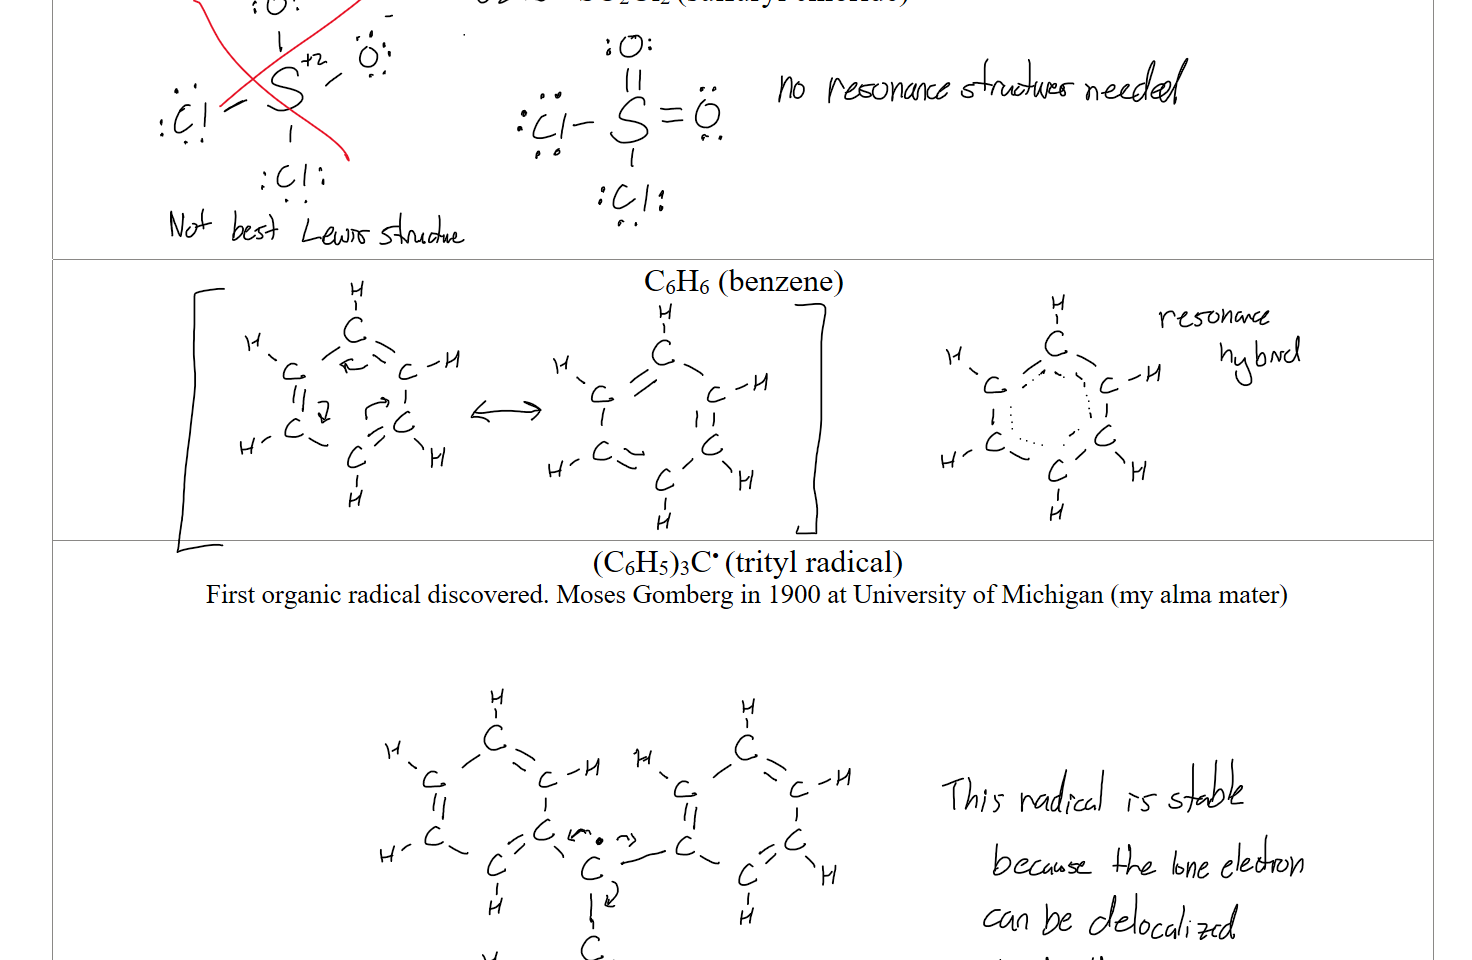 SO2Cl2 (sulfuryl chloride)
:O:
S+2
O:
-
:Cl
:Cl:
Not best Lewis structure
:O:
:Cl-S=O
:Cl:
no resonance structures needed
C6H6 (benzene)
H
H C
C C-H
H-C C
C H
H
H
H C
C C-H
H-C C
C H
H
H
H C
C C-H
H-C C
C H
H
resonance
hybrid
(C6H5)3C• (trityl radical)
First organic radical discovered. Moses Gomberg in 1900 at University of Michigan (my alma mater)
H H
H C H C
C C-H C C-H
H-C C C C
C C C H
H H
C
This radical is stable
because the lone electron
can be delocalized